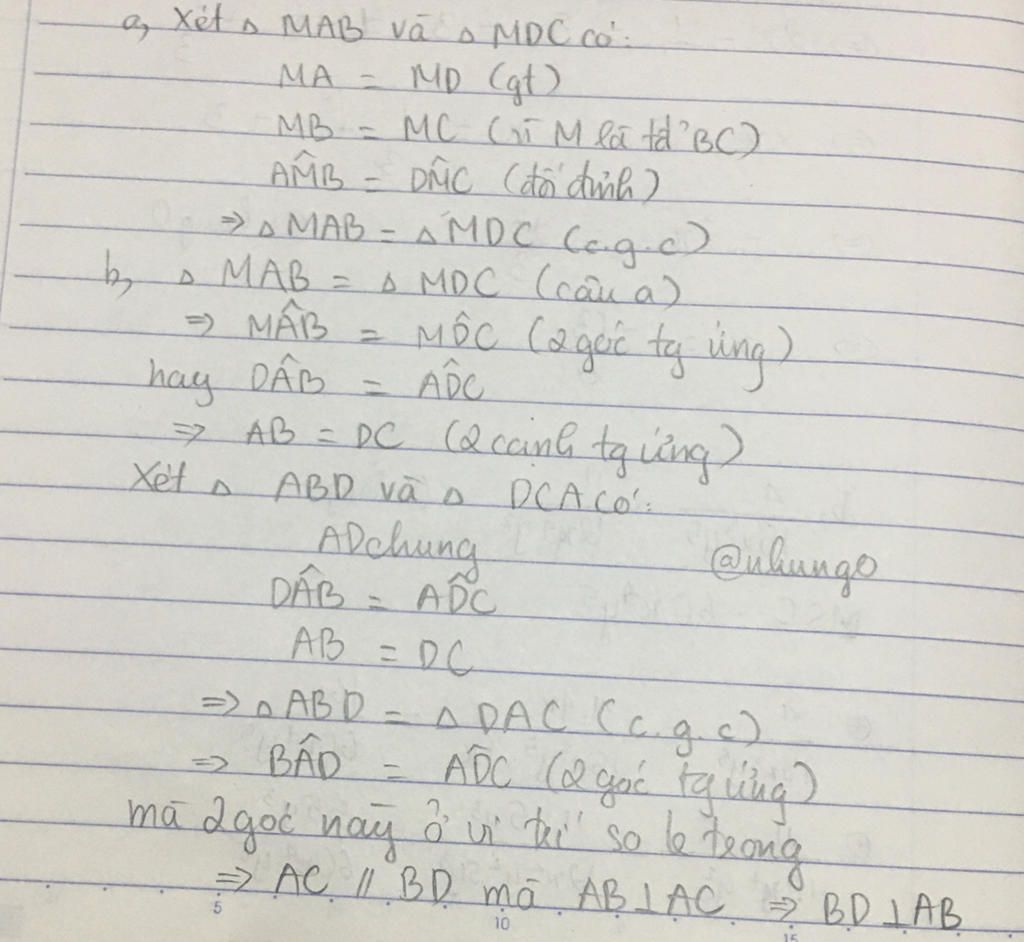 a, Xét △ MAB và △ MDC có:
MA = MD (gt)
MB = MC (vì M là tđ' BC)
AM̂B = DM̂C (đối đỉnh)
⇒ △ MAB = △ MDC (c.g.c)
b, △ MAB = △ MDC (câu a)
⇒ MÂB = MD̂C (2 góc tg ứng)
hay DÂB = AD̂C
⇒ AB = DC (2 cạnh tg ứng)
Xét △ ABD và △ DCA có:
AD chung
@nhung0
DÂB = AD̂C
AB = DC
⇒ △ ABD = △ DAC (c.g.c)
⇒ BÂD = AD̂C (2 góc tg ứng)
mà 2 góc này ở vị trí so le trong
⇒ AC // BD mà AB ⊥ AC ⇒ BD ⊥ AB
5 10 15